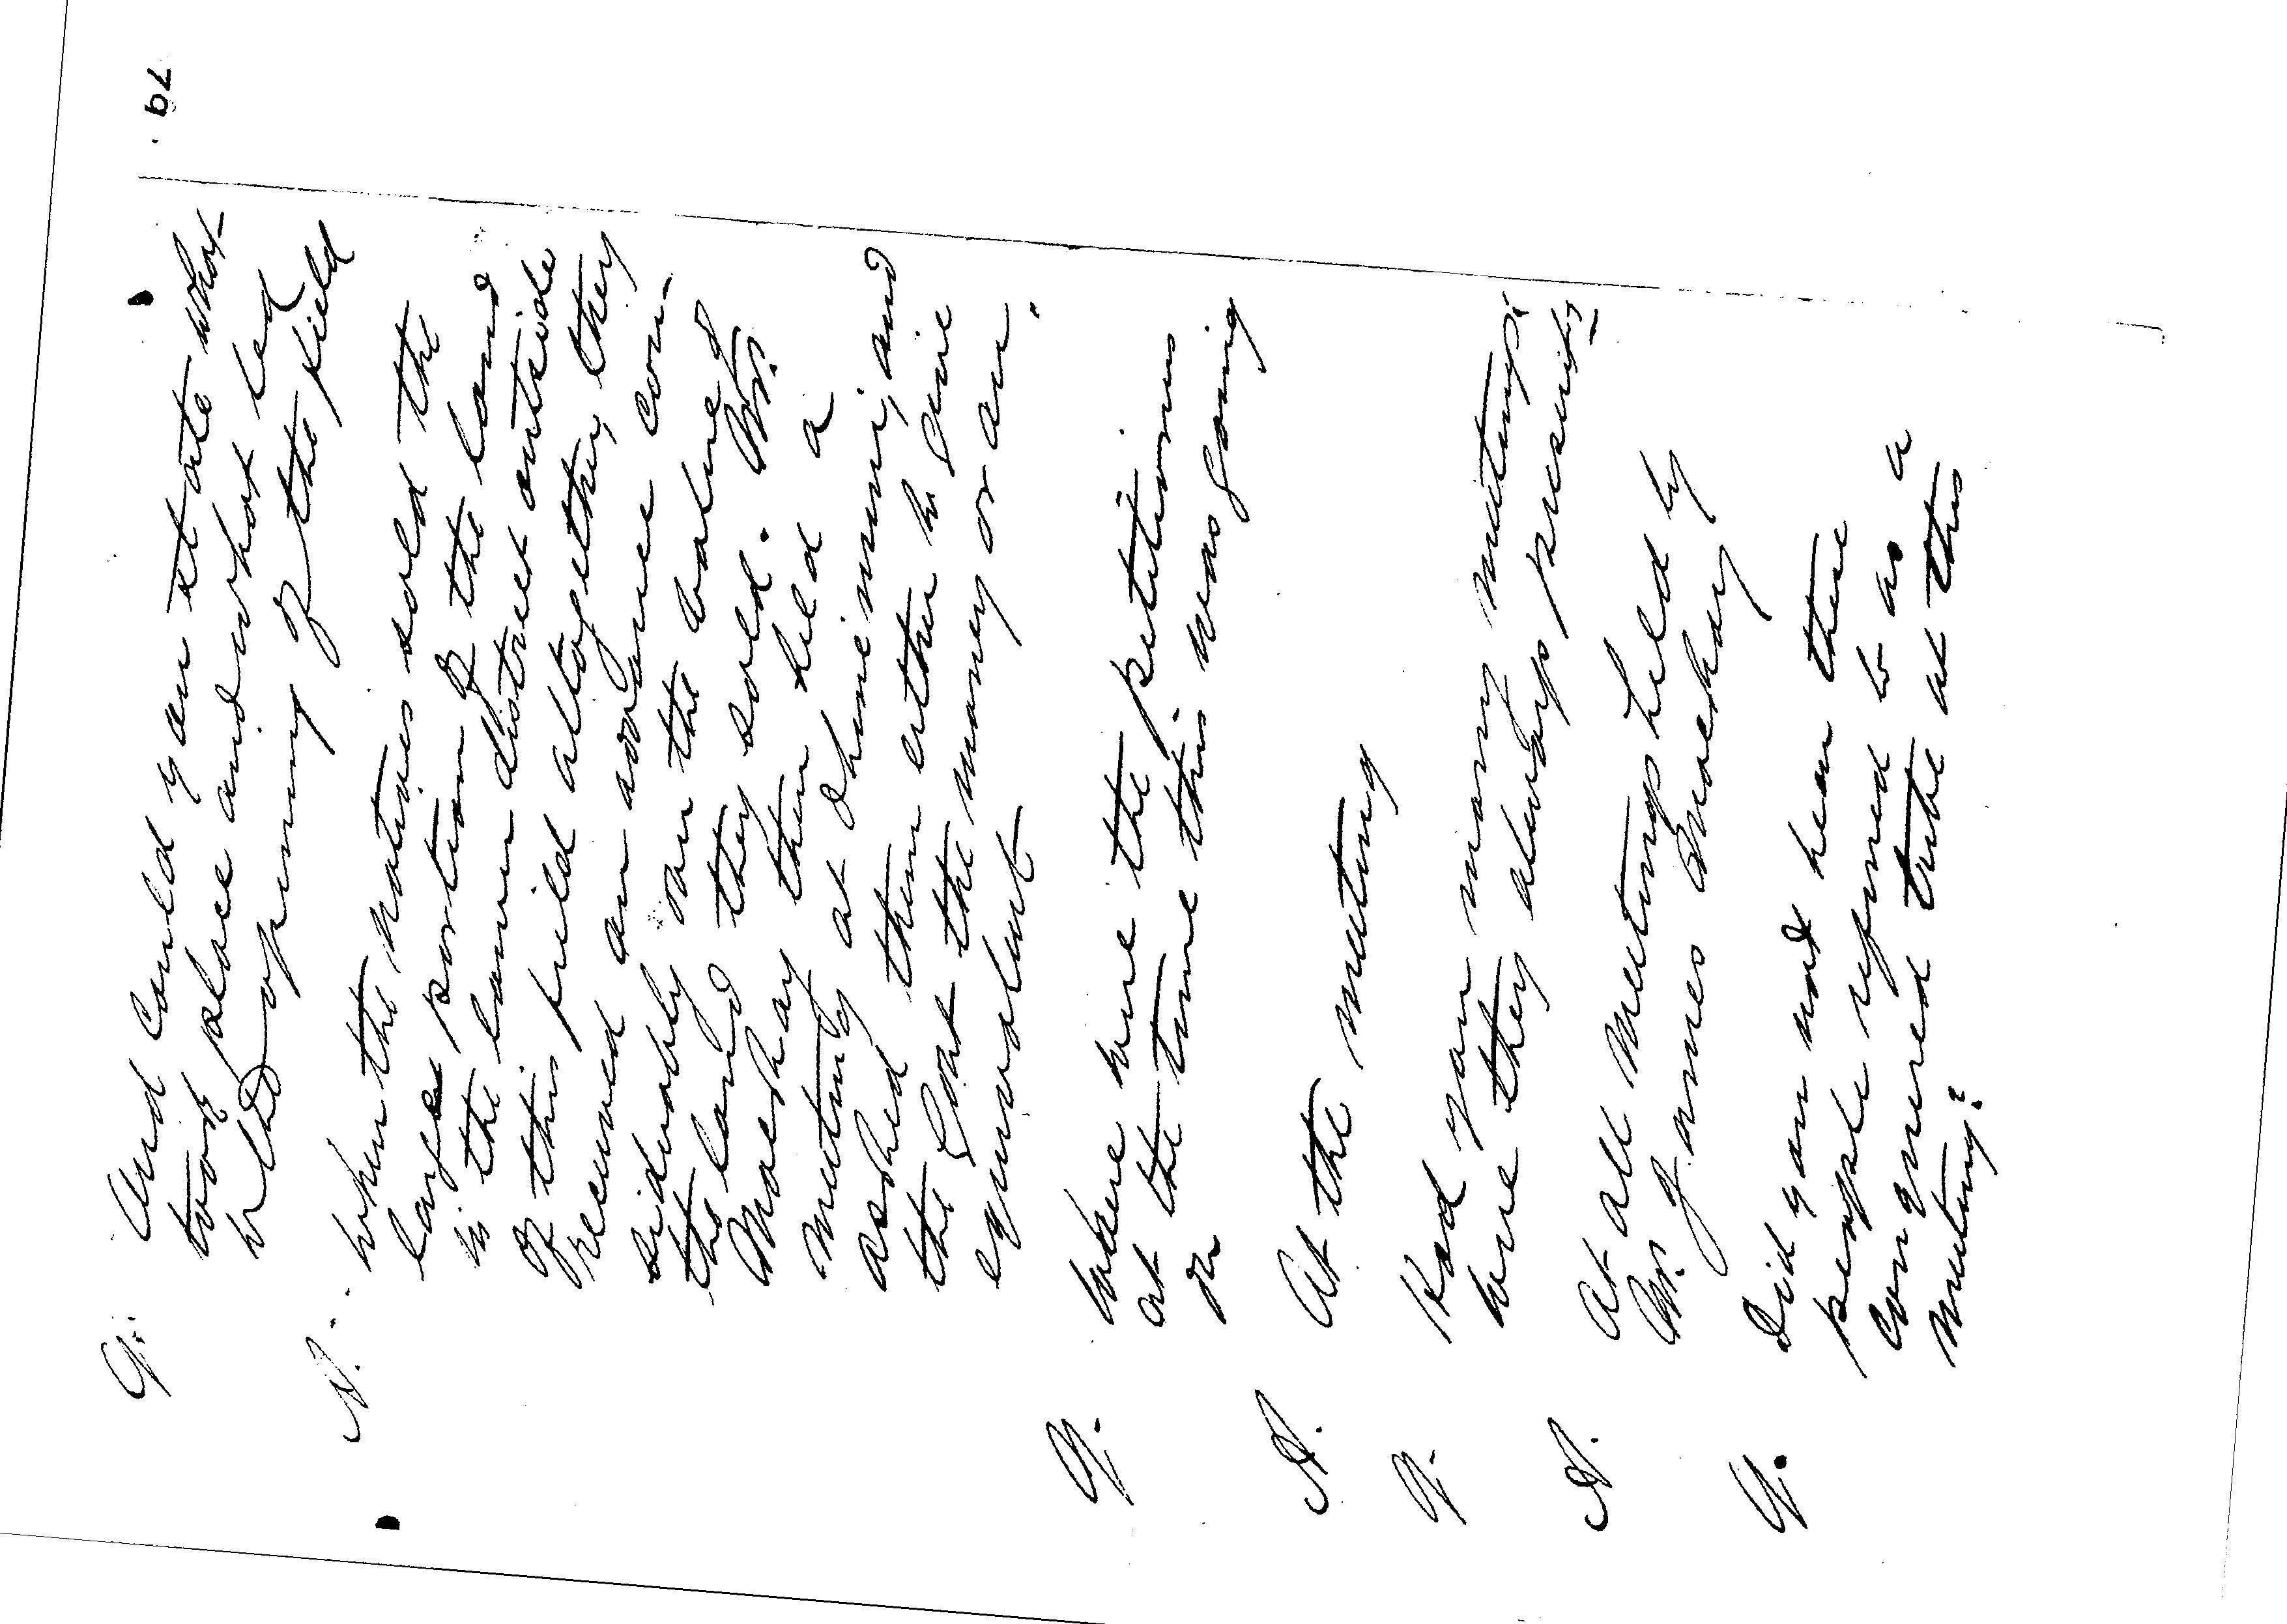 79.
Q. And could you state what
took place and what led
to the opening of the field
A. When the natives sold the
large portion of the land
in the lower district outside
of this field altogether, they
received an advance con-
siderably on the value of
the land they sold. Mr.
Mackay then held a
meeting at Ohinemuri, and
asked them either to give
the Govt the money or an
equivalent.
Q. Where were the petitions
at the time this was going
on
A. At the meeting
Q. Had you many meetings:
were they always present?
A. At all meetings held by
Mr. James Mackay
Q. Did you not hear these
people referred to as a
conquered tribe at this
meeting?